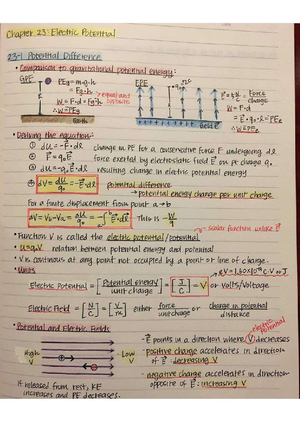 Chapter 23: Electric Potential
23-1 Potential Difference
• Comparison to gravitational potential energy:
GPE
EPE
PEg = m·g·h
= Fg·h
equal and opposite
W = F·d = Fg·h
∴ W = -PEg
Earth
W = F·d
= E·q₀·l = PEe
∴ W = PEe
• Deriving the equation:
① dU = -F·dl change in PE for a conservative force F undergoing dl
② F = q₀E force exerted by electrostatic field E on pt charge q₀
③ dU = -q₀E·dl resulting change in electric potential energy
④ dV = dU/q₀ = -E·dl potential difference
→ potential energy change per unit charge
for a finite displacement from point a → b
This is W/q
→ scalar function unlike E
• Function V is called the electric potential/potential.
• U = q₀V relation between potential energy and potential
• V is continuous at any point not occupied by a point or line of charge.
• Units
Electric Potential = [Potential energy / unit charge] = [J/C] = V or Volts/Voltage
Electric Field = [N/C] = [V/m] either force/unit charge or change in potential/distance
• Potential and Electric Fields
electric potential
High V
Low V
→ E points in a direction where V decreases
- positive charge accelerates in direction
of E: decreasing V
- negative charge accelerates in direction
opposite of E: increasing V
if released from rest, KE
increases and PE decreases.